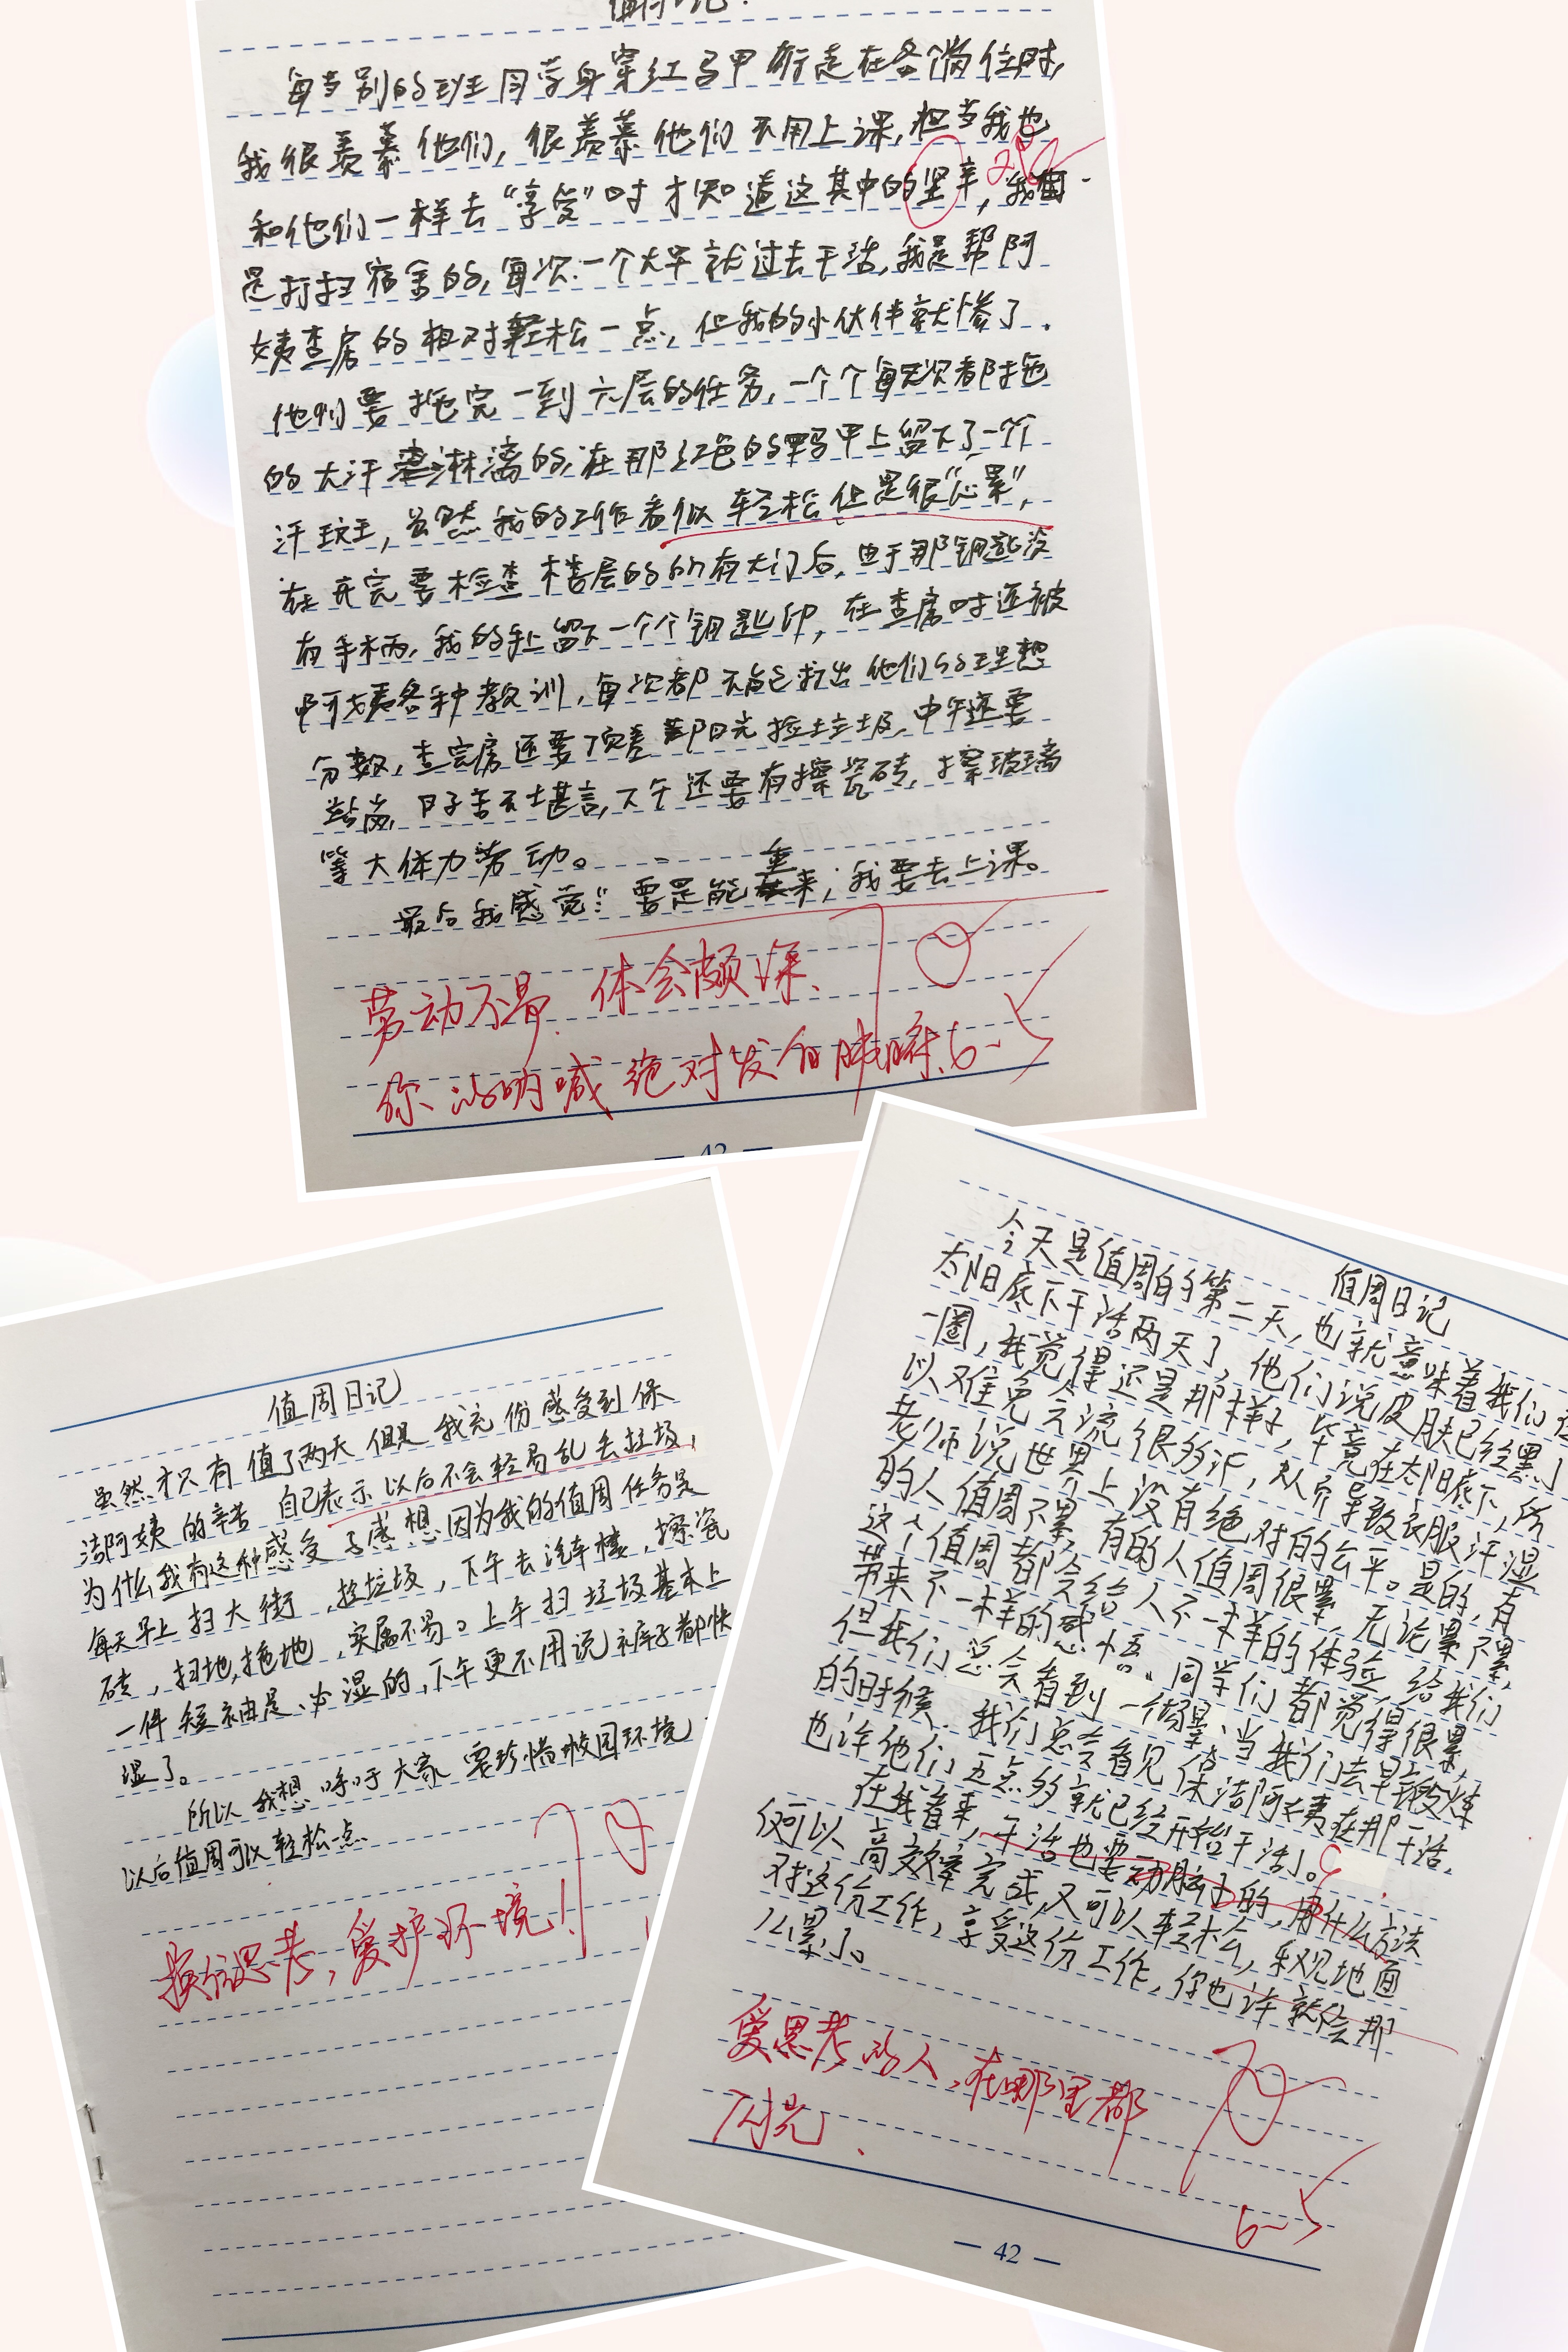 值周日记:
每当别的班同学身穿红马甲行走在各个岗位时,
我很羡慕他们,很羡慕他们不用上课,但当我也
和他们一样去“享受”时才知道这其中的坚辛,我
是打扫宿舍的,每次一个大早就过去干活,我是帮阿
姨查房的相对轻松一点,但我的小伙伴就惨了.
他们要拖完一到六层的任务,一个个每次都拖
的大汗淋漓的,在那红色的马甲上留下了一个
汗斑,虽然我的工作看似轻松但是很“心累”,
在开完要检查楼层的所有大门后,由于那钥匙没
有手柄,我的手上留下一个个钥匙印,在查房时还被
阿姨各种教训,每次都不能打出他们的理想
分数,查完房还要顶着阳光捡垃圾,中午还要
站岗,日子苦不堪言,下午还要有擦瓷砖,擦玻璃
等大体力劳动。
最后我感觉:“要是能重来,我要去上课。
劳动不易,体会颇深、
你的呐喊绝对发自肺腑.6-5
— 42 —
值周日记
虽然才只有值了两天但是我充份感受到保
洁阿姨的辛苦 自己表示以后不会轻易乱丢垃圾,
为什么我有这种感受了感想因为我的值周任务是
每天早上扫大街,捡垃圾,下午去汽车楼,擦瓷
砖,扫地,拖地,实属不易。上午扫垃圾基本上
一件短袖是必湿的,下午更不用说裤子都快
湿了。
所以我想呼吁大家要珍惜校园环境
以后值周可以轻松一点
换位思考,爱护环境!
值周日记
今天是值周的第二天,也就意味着我们在
太阳底下干活两天了,他们说皮肤已经黑了
一圈,我觉得还是那样子,毕竟在太阳底下,所
以难免会流很多汗,从而导致衣服汗湿
老师说世界上没有绝对的公平。是的,有
的人值周不累,有的人值周很累,无论累不累,
这个值周都会给人不一样的体验,给我们
带来不一样的感悟、同学们都觉得很累,
但我们总会看到一幅景、当我们去早锻炼
的时候.我们总会看见保洁阿姨在那干活,
也许他们五点多就已经开始干活了。
在我看来,干活也要动脑子的,用什么方法
仅可以高效率完成,又可以轻松,乐观地面
对这份工作,享受这份工作,你也许就会那
么累了。
爱思考的人,在哪里都
闪光.
6-5
— 42 —